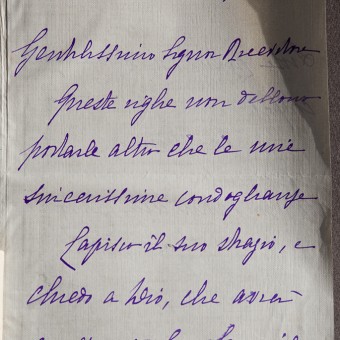 Gentilissimo Signor Direttore
Queste righe non debbono
portarle altro che le mie
sincerissime condoglianze
Capisco il suo strazio, e
chiedo a Dio, che avrà